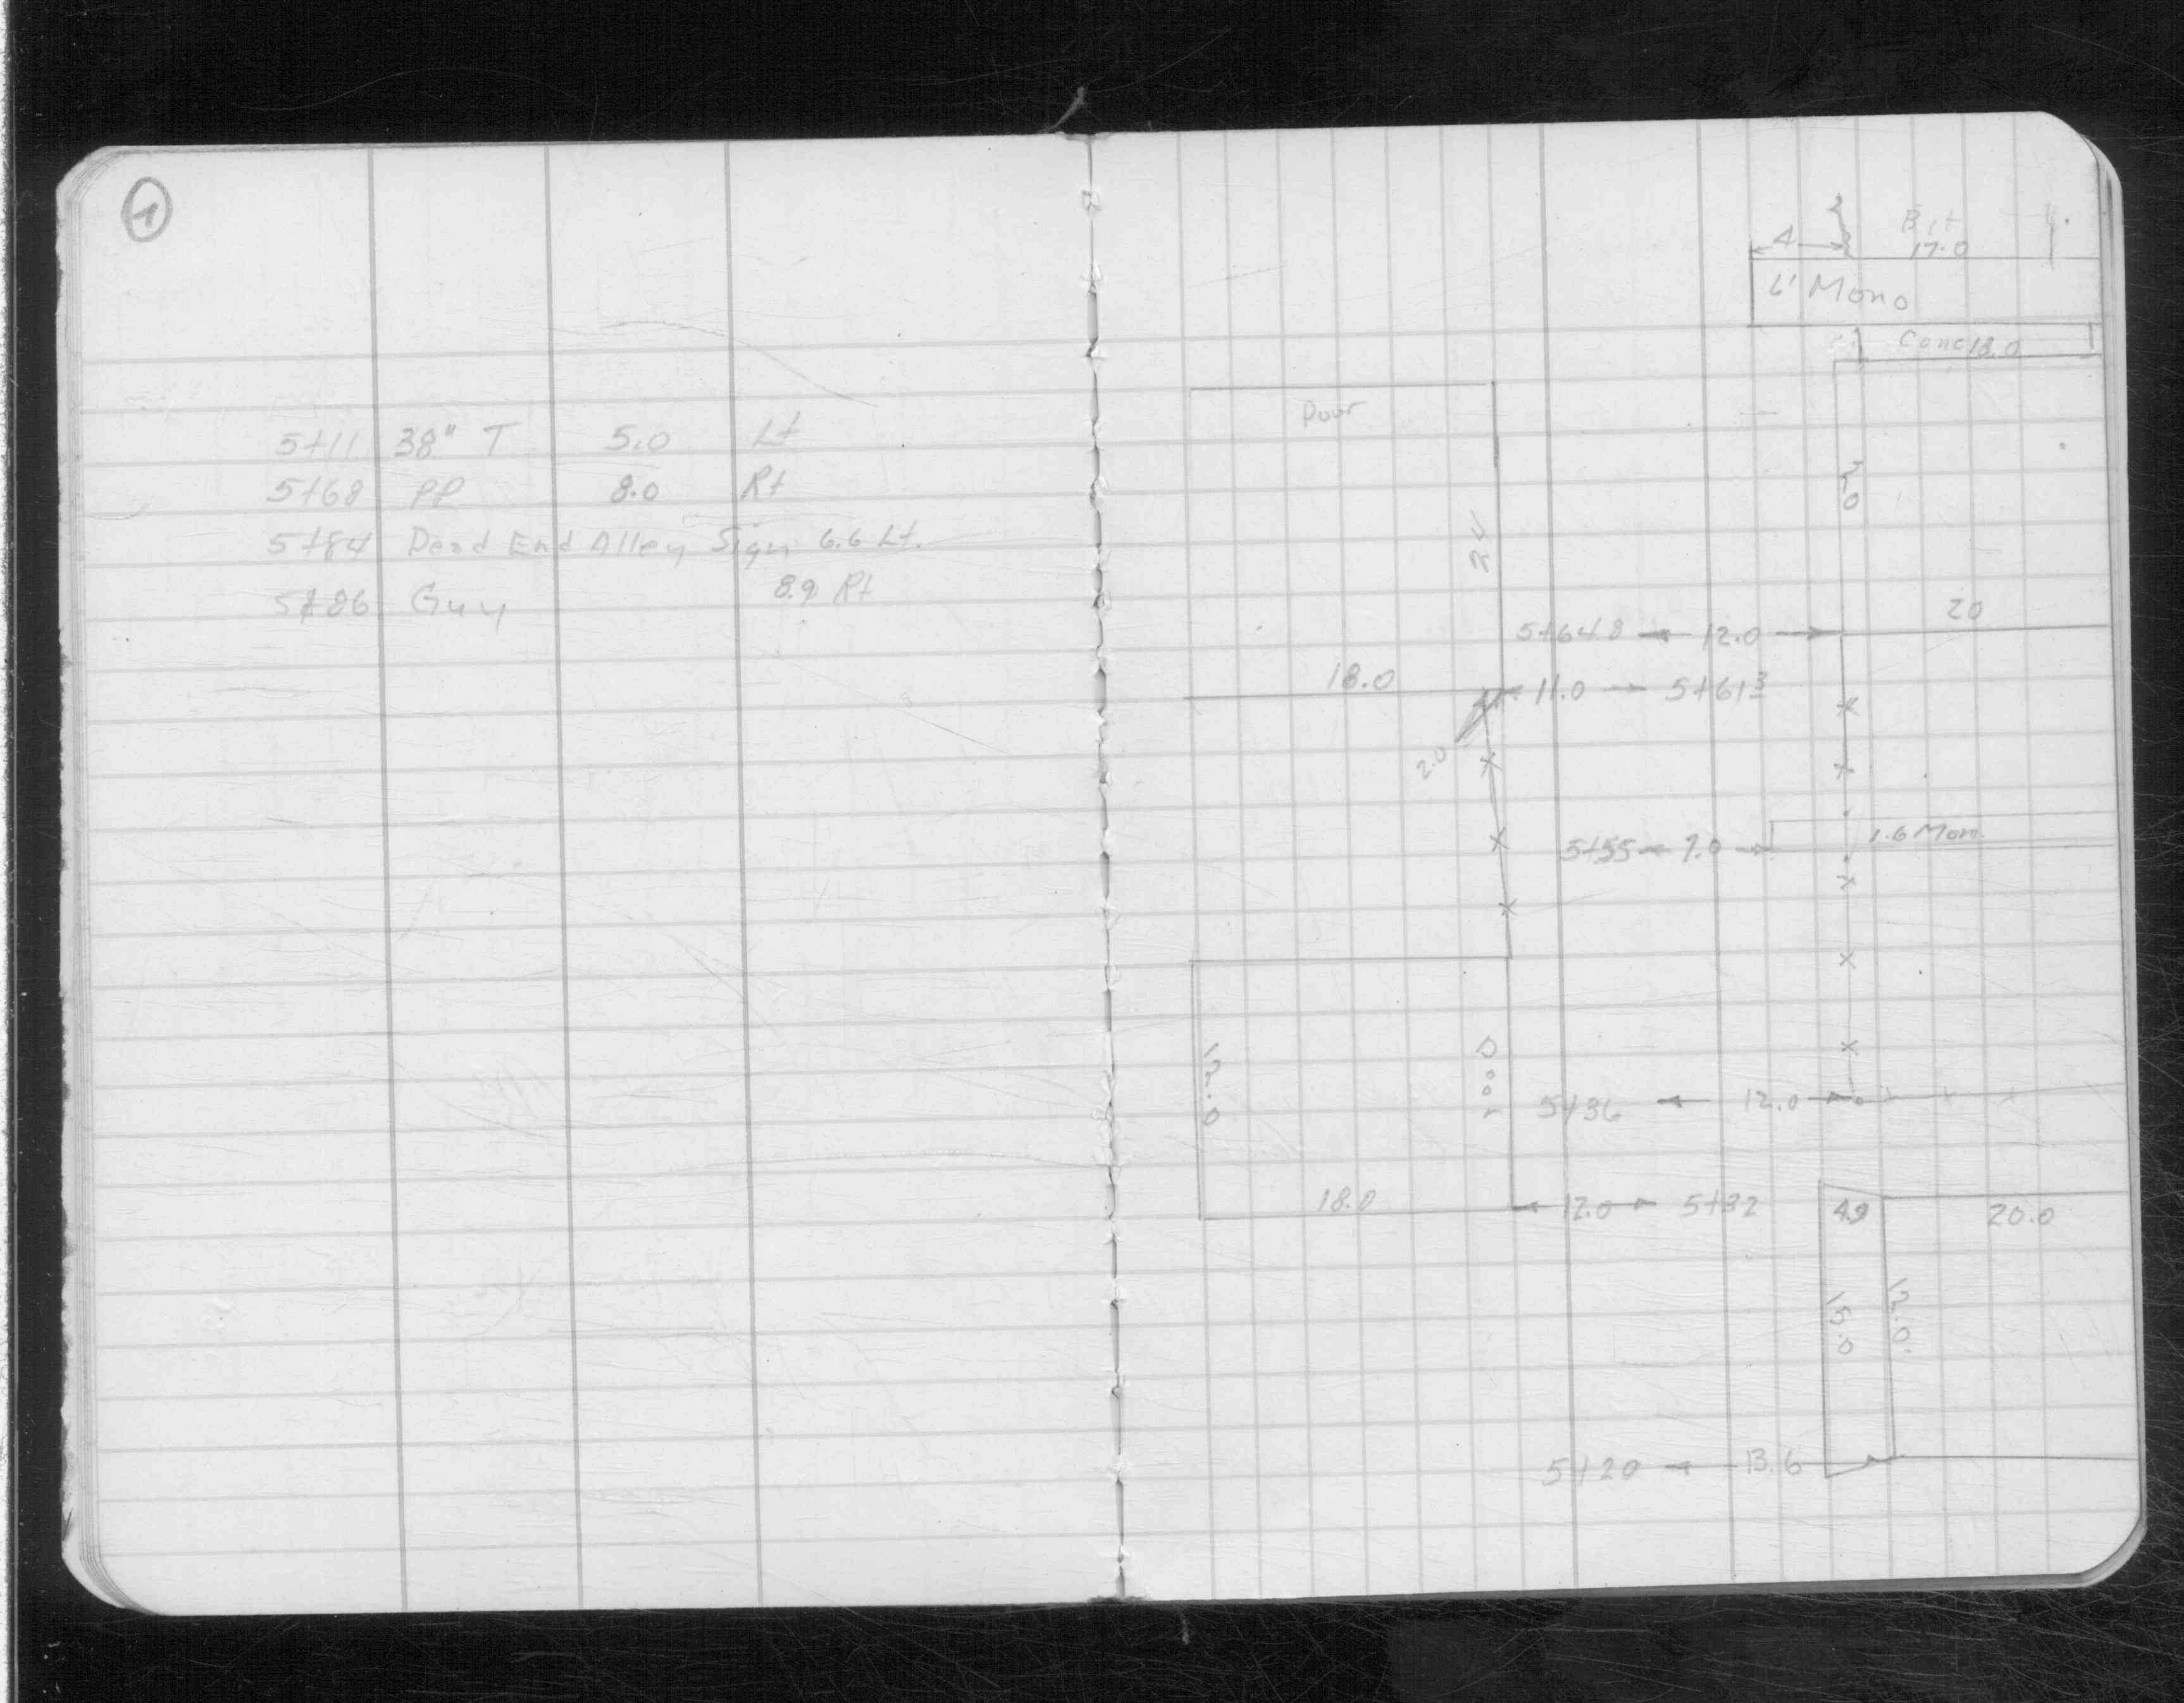 1
5+11 38" T 5.0 Lt
5+68 PP 8.0 Rt
5+84 Dead End Alley Sign 6.6 Lt.
5+86 Guy 8.9 Rt
4 Bit
17.0
6' Mono
Conc 18.0
Door
20
5+64.8 12.0
18.0 11.0 5+61.3
2.0
5+55 7.0 1.6 Mon.
12.0 Door
5+36 12.0
18.0 12.0 5+32 4.9 20.0
15.0 12.0
5+20 13.6